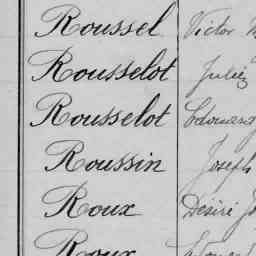 Roussel Victor
Rousselot Julien
Rousselot Edouard
Roussin Joseph
Roux Désiré
Roux